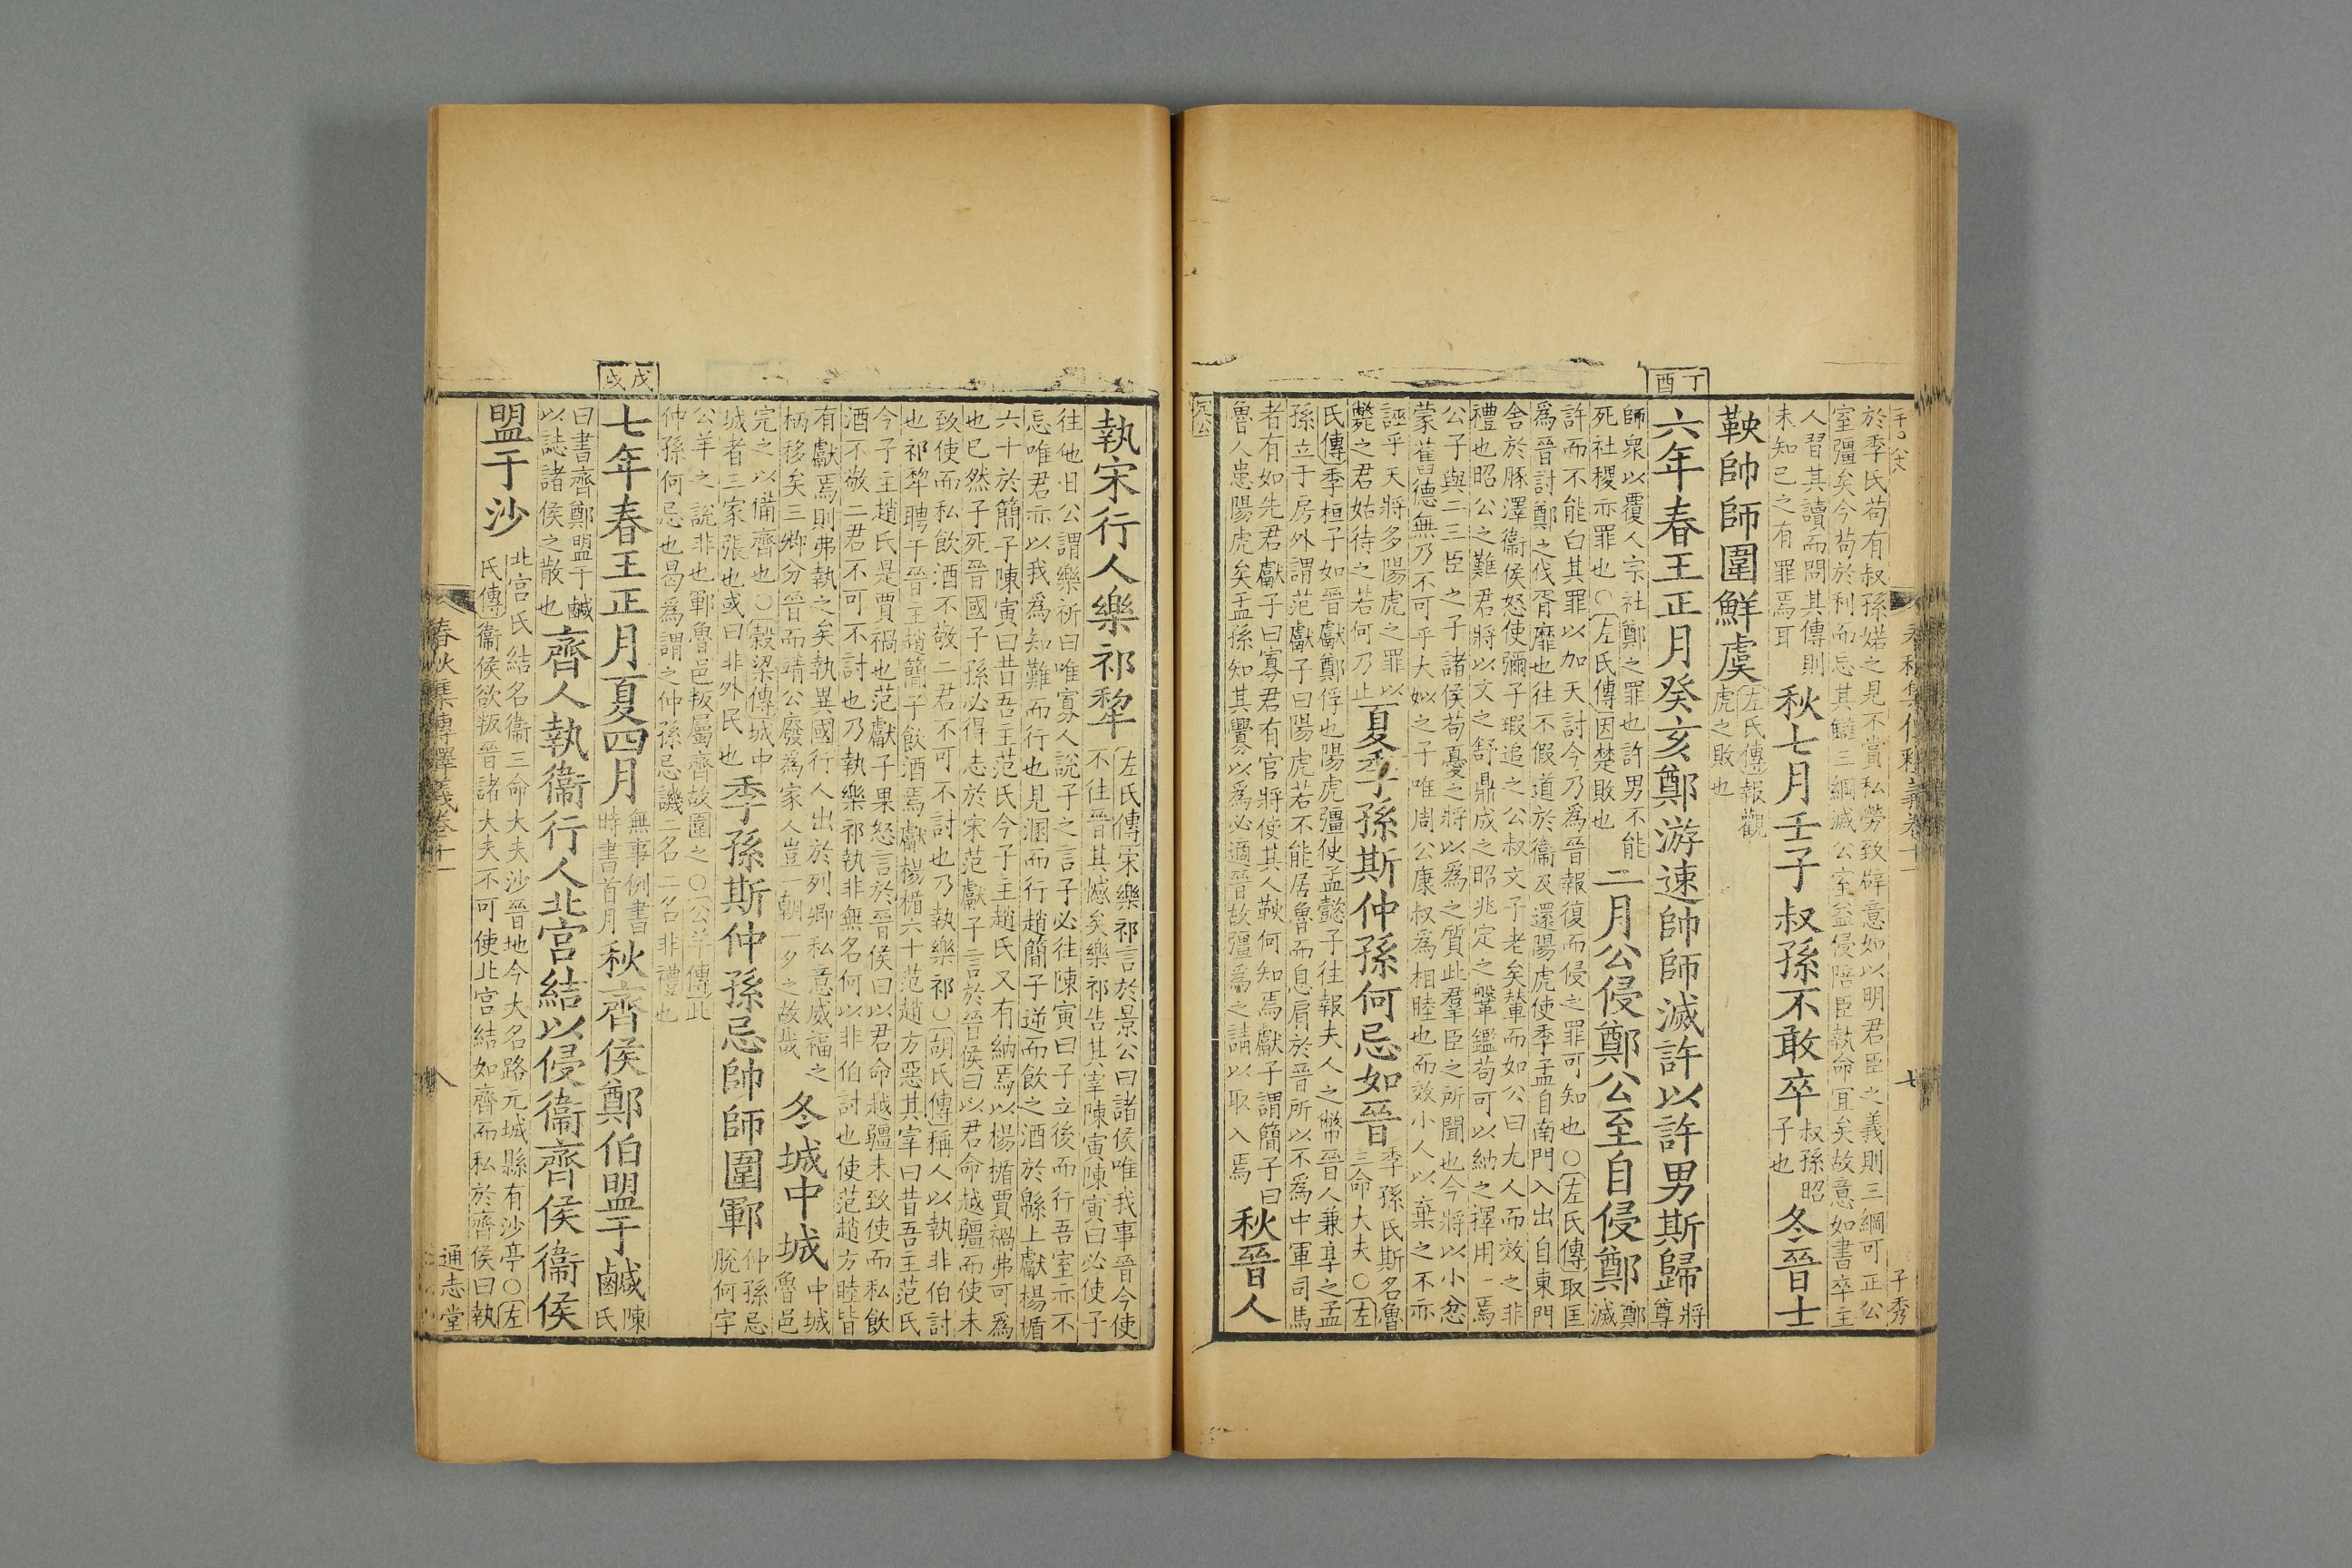 於季氏苟有叔孫婼之見不賞私勞致辟意如以明君臣之義則三綱可正公
室彊矣今苟於利而忘其讎三綱滅公室益侵陪臣執命宜矣故意如書卒主
人習其讀而問其傳則
未知己之有罪焉耳
秋七月壬子叔孫不敢卒
叔孫昭
子也
冬晉士
鞅帥師圍鮮虞
左氏傳報觀
虎之敗也
丁酉
六年春王正月癸亥鄭游速帥師滅許以許男斯歸
將
尊
師衆以覆人宗社鄭之罪也許男不能
死社稷亦罪也○左氏傳因楚敗也
二月公侵鄭公至自侵鄭
鄭
滅
許而不能白其罪以加天討今乃爲晉報復而侵之罪可知也○左氏傳取匡
爲晉討鄭之伐胥靡也往不假道於衞及還陽虎使季孟自南門入出自東門
舍於豚澤衞侯怒使彌子瑕追之公叔文子老矣輦而如公曰尤人而效之非
禮也昭公之難君將以文之舒鼎成之昭兆定之鞶鑑苟可以納之擇用一焉
公子與二三臣之子諸侯苟憂之將以爲之質此羣臣之所聞也今將以小忿
蒙舊德無乃不可乎大姒之子唯周公康叔爲相睦也而效小人以棄之不亦
誣乎天將多陽虎之罪以
斃之君姑待之若何乃止
夏季孫斯仲孫何忌如晉
季孫氏斯名魯
三命大夫○左
氏傳季桓子如晉獻鄭俘也陽虎彊使孟懿子往報夫人之幣晉人兼享之孟
孫立于房外謂范獻子曰陽虎若不能居魯而息肩於晉所以不爲中軍司馬
者有如先君獻子曰寡君有官將使其人鞅何知焉獻子謂簡子曰
魯人患陽虎矣孟孫知其釁以爲必適晉故彊爲之請以取入焉
秋晉人
執宋行人樂祁犂
左氏傳宋樂祁言於景公曰諸侯唯我事晉今使
不往晉其憾矣樂祁告其宰陳寅陳寅曰必使子
往他日公謂樂祈曰唯寡人說子之言子必往陳寅曰子立後而行吾室亦不
忘唯君亦以我爲知難而行也見溷而行趙簡子逆而飲之酒於緜上獻楊楯
六十於簡子陳寅曰昔吾主范氏今子主趙氏又有納焉以楊楯賈禍弗可爲
也已然子死晉國子孫必得志於宋范獻子言於晉侯曰以君命越疆而使未
致使而私飲酒不敬二君不可不討也乃執樂祁○胡氏傳稱人以執非伯討
也祁犂聘于晉主趙簡子飲酒焉獻楊楯六十范趙方惡其宰曰昔吾主范氏
今子主趙氏是賈禍也范獻子果怒言於晉侯曰以君命越疆未致使而私飲
酒不敬二君不可不討也乃執樂祁執非無名何以非伯討也使范趙方睦皆
有獻焉則弗執之矣執異國行人出於列卿私意威福之
柄移矣三卿分晉而靖公廢爲家人豈一朝一夕之故哉
冬城中城
中城
魯邑
完之以備齊也○穀梁傳城中
城者三家張也或曰非外民也
季孫斯仲孫忌帥師圍鄆
仲孫忌
脫何字
公羊之說非也鄆魯邑叛屬齊故圍之○公羊傳此
仲孫何忌也曷爲謂之仲孫忌譏二名二名非禮也
戊戌
七年春王正月夏四月
無事例書
時書首月
秋齊侯鄭伯盟于鹹
陳
氏
曰書齊鄭盟于鹹
以誌諸侯之散也
齊人執衞行人北宮結以侵衞齊侯衞侯
盟于沙
北宮氏結名衞三命大夫沙晉地今大名路元城縣有沙亭○左
氏傳衞侯欲叛晉諸大夫不可使北宮結如齊而私於齊侯曰執
春秋集傳釋義卷十一
八
通志堂